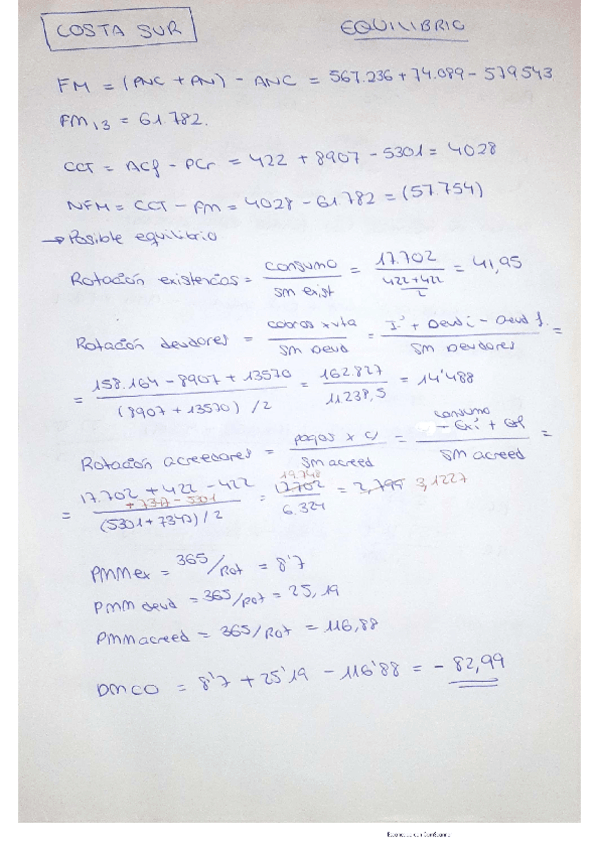 COSTA SUR
EQUILIBRIO
FM = (PNC + PN) - ANC = 567.236 + 74.089 - 579.543
FM13 = 61.782.
CCT = ACf - PCr = 422 + 8907 - 5301 = 4028
NFM = CCT - FM = 4028 - 61.782 = (57.754)
→ Posible equilibrio
Rotación existencias = consumo / SM exist = 17.702 / (422+422 / 2) = 41,95
Rotación deudores = cobros x vta / SM Deud = I' + Deud i - Deud f. / SM Deudores =
= 158.164 - 8907 + 13570 / (8907 + 13570) /2 = 162.827 / 11.238,5 = 14'488
Rotación acreedores = pagos x c/ / SM acreed = consumo - Exi + Ef / SM acreed =
= 17.702 + 422 - 422 + 7347 - 5301 / (5301 + 7347) / 2 = 19.748 17702 / 6.324 = 2,799 3,1227
PMMex = 365/Rot = 8'7
PMM deud = 365/Rot = 25,19
PMM acreed = 365/Rot = 116,88
DMCO = 8'7 + 25'19 - 116'88 = - 82,99